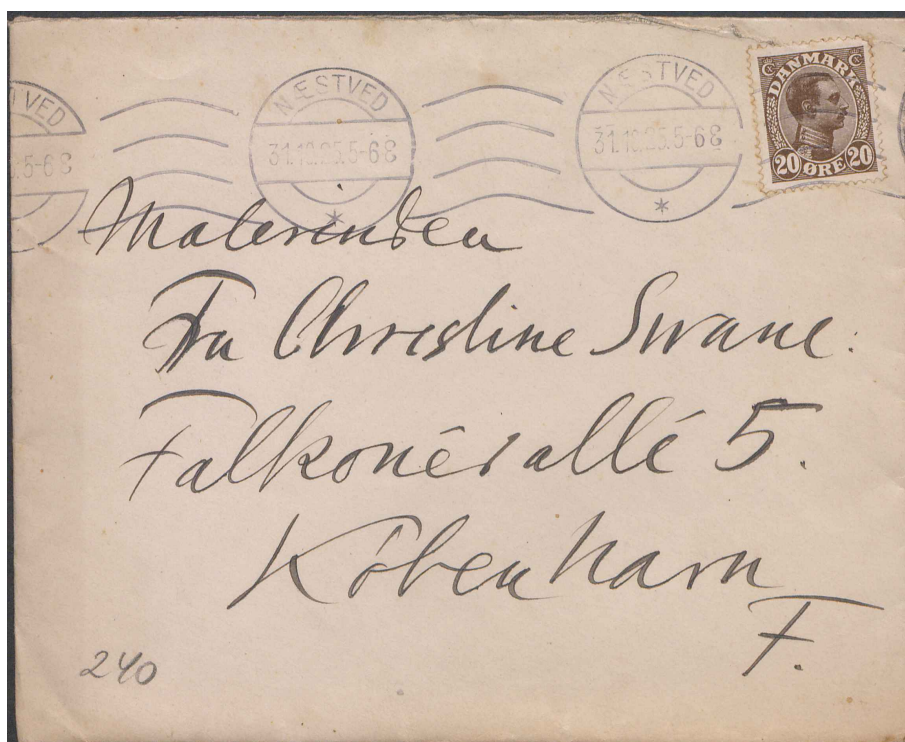 NÆSTVED
31.10.25.5-6 E
NÆSTVED
31.10.25.5-6 E
DANMARK
20 ØRE 20
Malerinden
Fru Christine Swane.
Falkonérallé 5.
København
F.
240